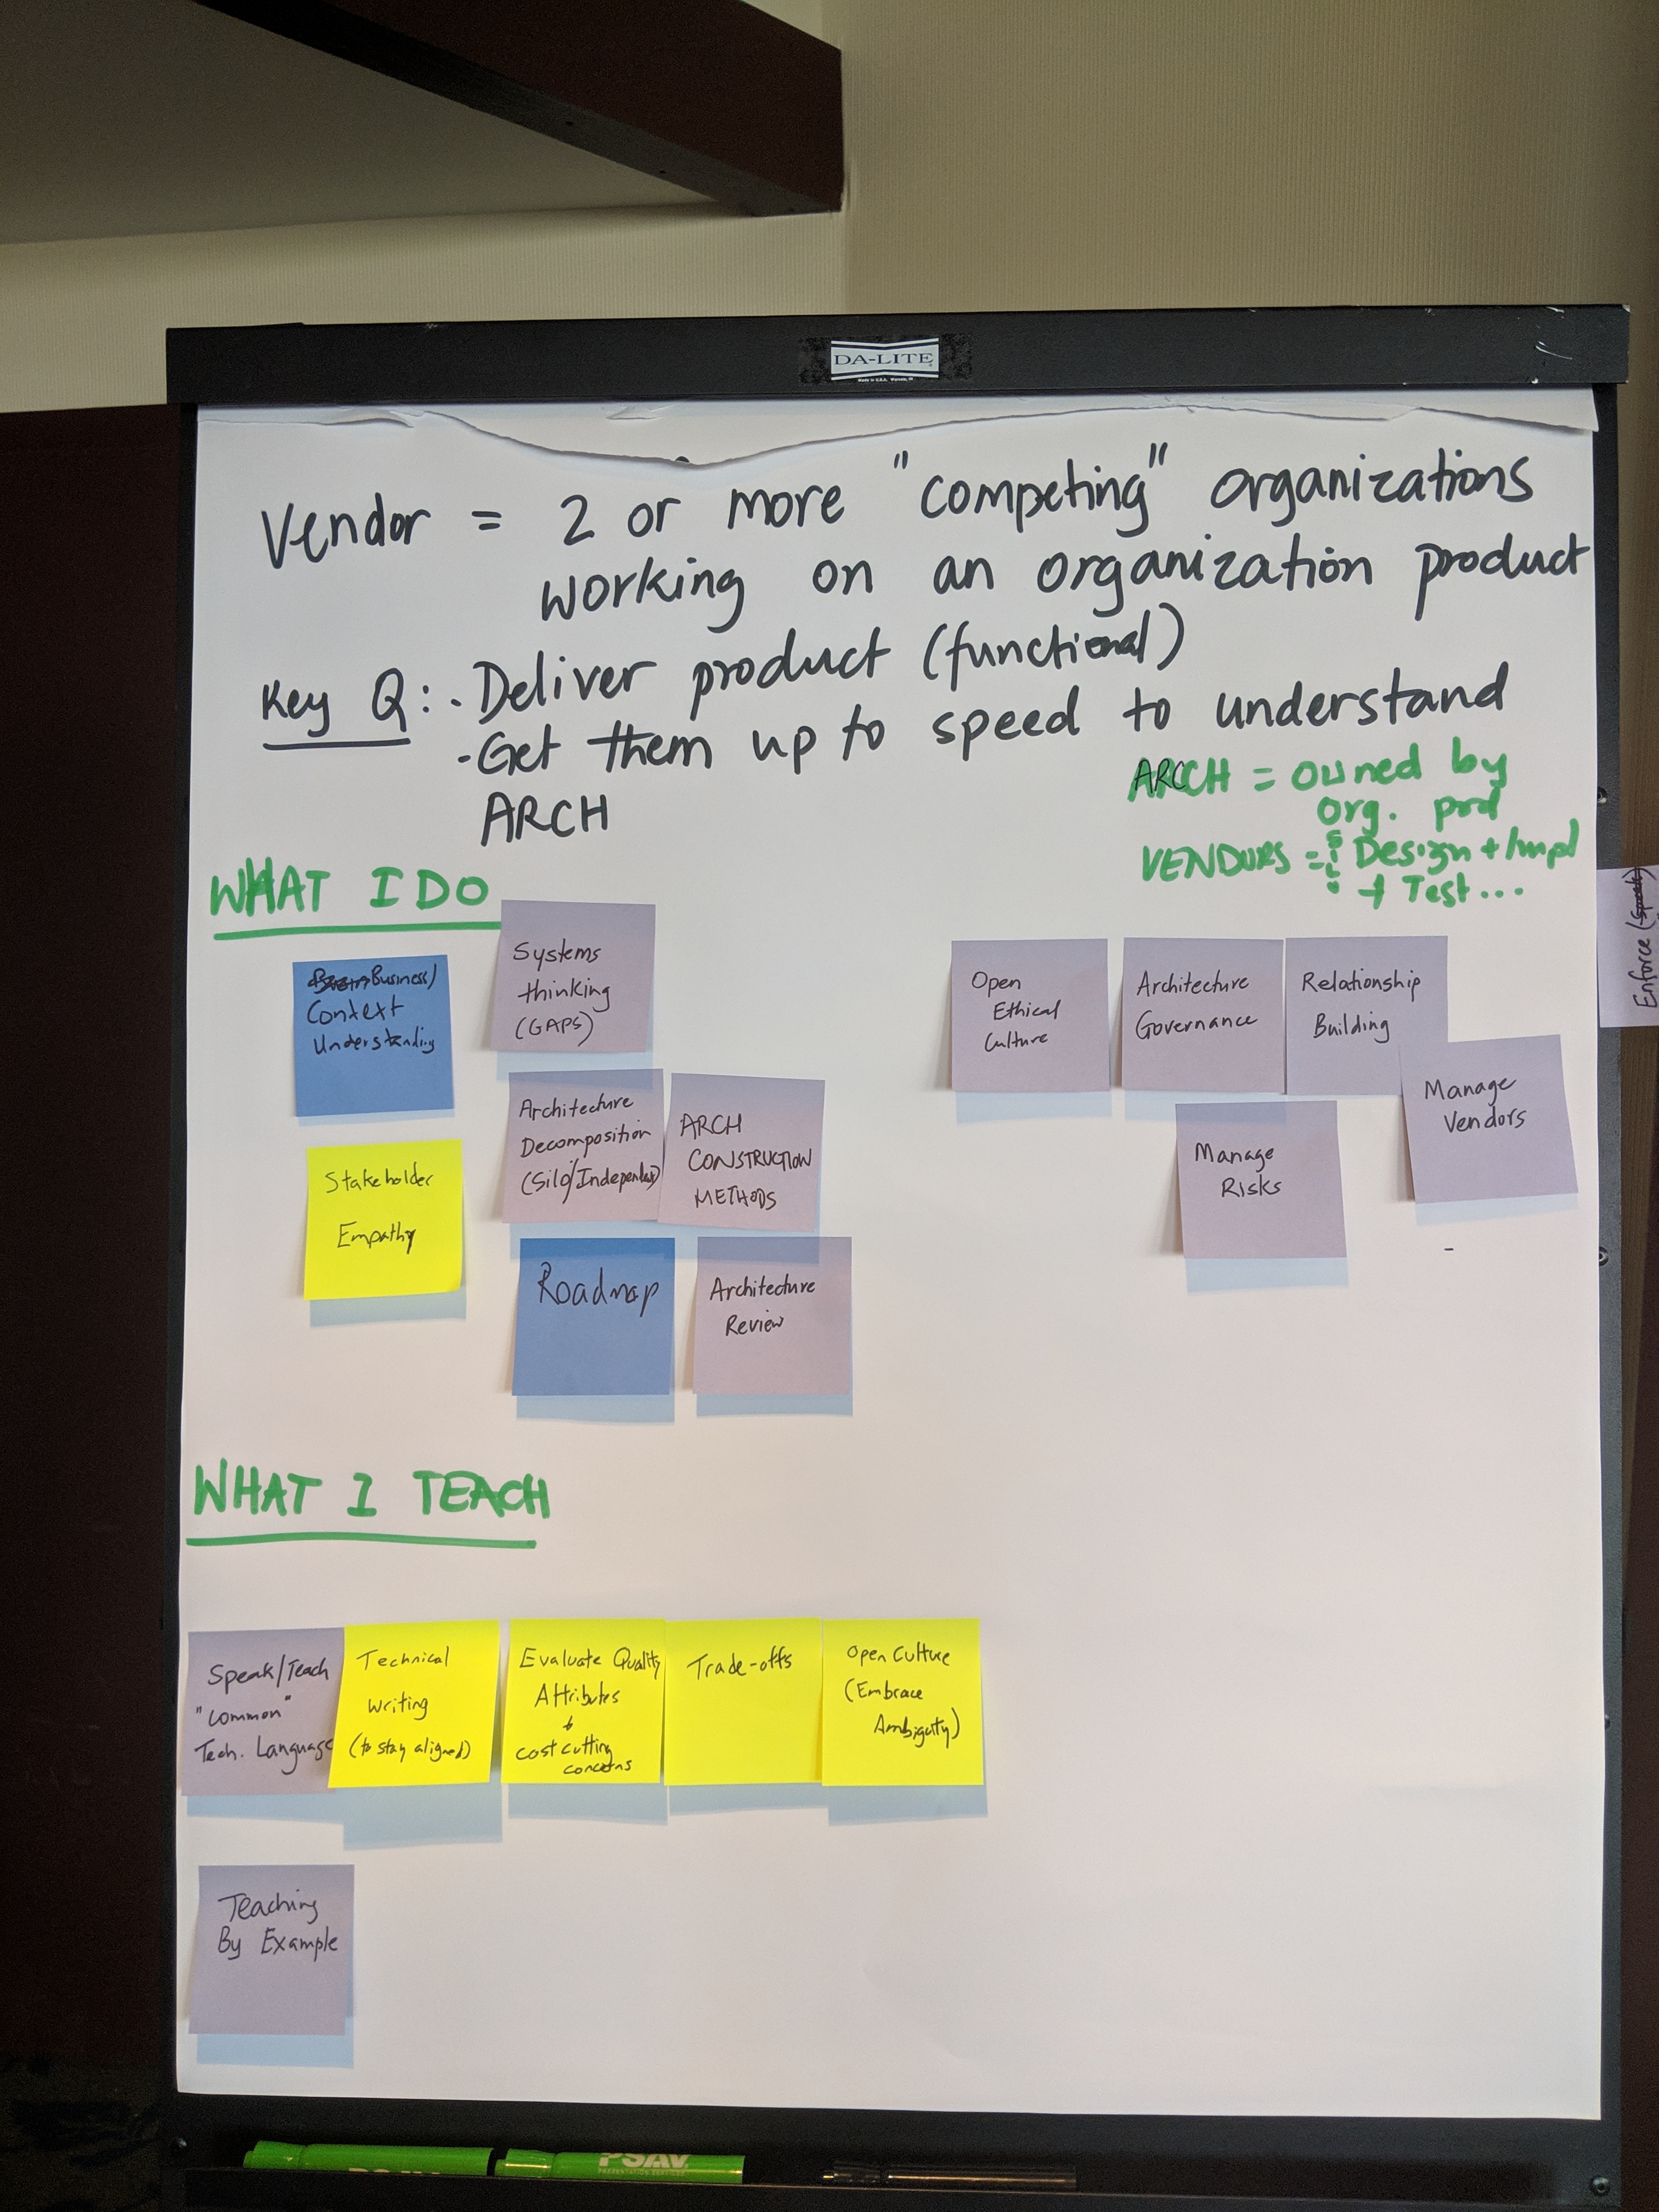 DA-LITE
Vendor = 2 or more "competing" organizations
working on an organization product
Key Q: - Deliver product (functional)
- Get them up to speed to understand
ARCH
ARCH = owned by
org. prd
VENDORS = Design + Impl
+ Test...
WHAT I DO
Business)
Context
Understanding
Systems
thinking
(GAPS)
Stakeholder
Empathy
Architecture
Decomposition
(Silo/Independent)
ARCH
CONSTRUCTION
METHODS
Roadmap
Architecture
Review
Open
Ethical
Culture
Architecture
Governance
Relationship
Building
Manage
Vendors
Manage
Risks
Enforce
WHAT I TEACH
Speak/Teach
"Common"
Tech. Language
Technical
Writing
(to stay aligned)
Evaluate Quality
Attributes
&
cost cutting
concerns
Trade-offs
Open Culture
(Embrace
Ambiguity)
Teaching
By Example
PSAV
PSAV